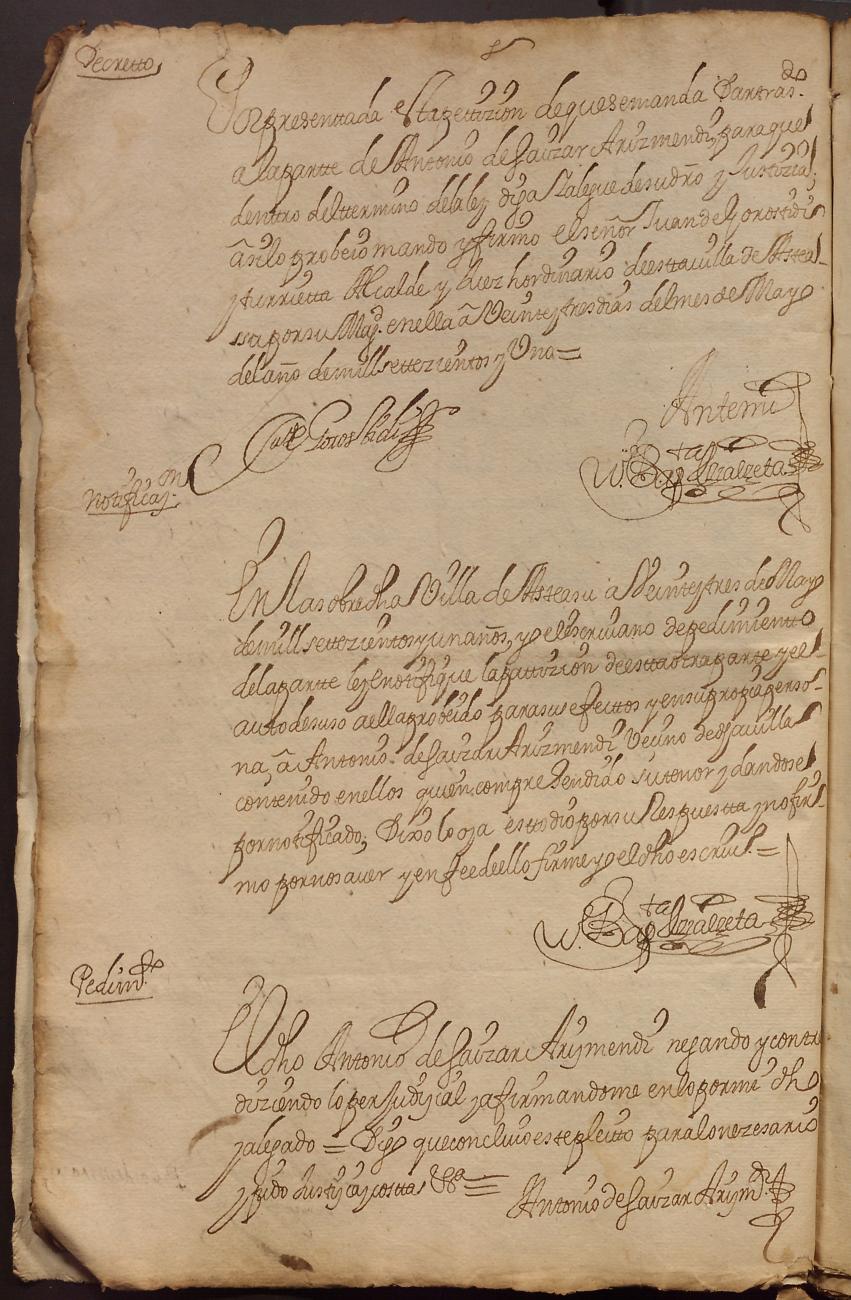 Decretto
Por presenttada esta petizion de que se manda dar tras.do
a la partte de Antonio de Saizar Arizmendi, para que
dentro del ttermino de la ley diga y alegue de su dro y Justizia,
asi lo probeio mando y firmo el señor Juan de Gorostidi
Yturrietta Alcalde y Juez hordinario de estta villa de Astea-
ssu por su Magd. en ella â Veinte y tres dias del mes de Mayo
del año de mill settezientos y Uno=
Gorostidi
Antemi
Bapta. Elizalzeta
Notificazon
En la sobre dha Villa de Asteasu a Veinte y tres de Mayo
de mill settezientos y un años, yo el escriuano de pedimientto
de la partte ley e notifique la pettizion de estta otra parte y el
auto de suso a ella probeido para sus efecttos y en su propia perso-
na, â Antonio de Saizar Arizmendi Vecino de dha villa
contenido en ellos quien comprehendido su tenor y dandose
por notificado; Dixo lo oja estto dio por su Respuestta y no fir-
mo por no sauer y en fee de ello firme yo el dho escriu.o=
Bapta. Elizalzeta
Pedimto
El dho Antonio de Saizar Arizmendi negando y contra
diziendo lo perjudizial y afirmandome en lo por mi dho
y alegado = Digo que concluio este pleitto para lo nezesario
y pido Justizia y costtas Vª=
Antonio de Saizar Arizmdi